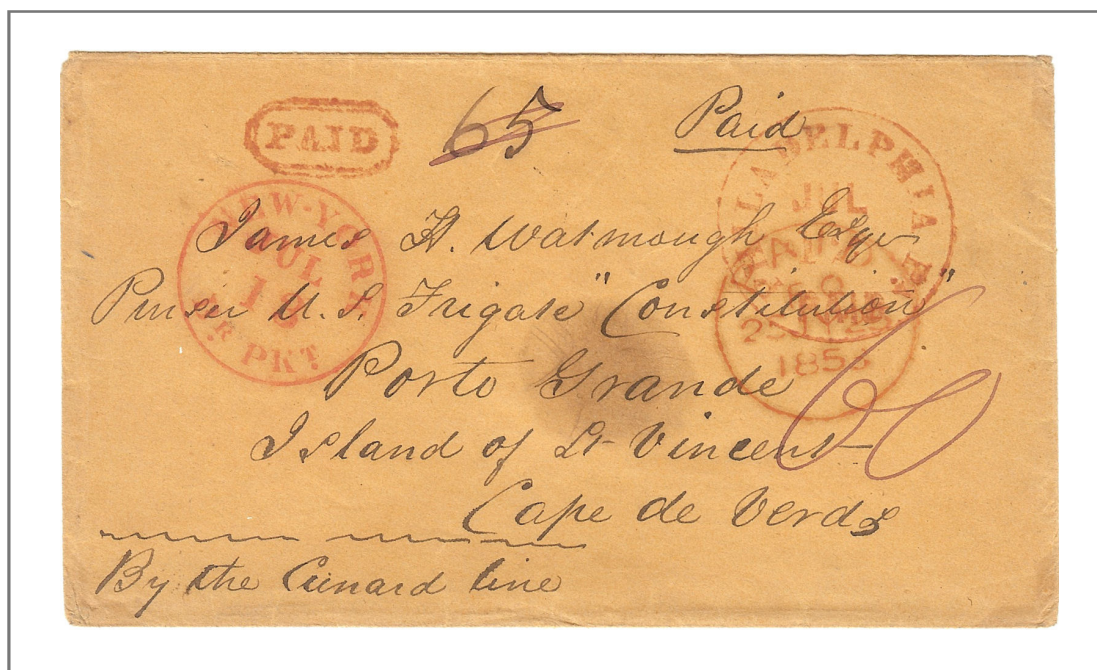 PAID
65
Paid
PHILADELPHIA Pa
JUL
NEW-YORK
JUL
13
BR. PKT.
PAID
25 JY 25
1853
James H. Watmough Esqr
Purser U. S. Frigate "Constitution"
Porto Grande
Island of St Vincent
Cape de Verds
60
By the Cunard line